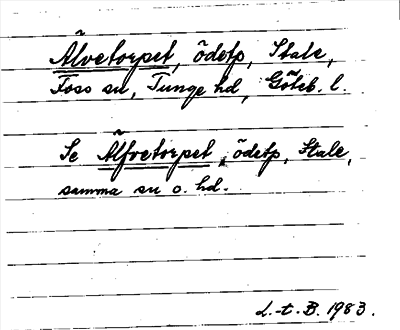 Älvetorpet, ödetp, Stale,
Foss sn, Tunge hd, Göteb. l.
Se Älfvetorpet, ödetp, Stale,
samma sn o. hd.
L.-t.-B. 1983.